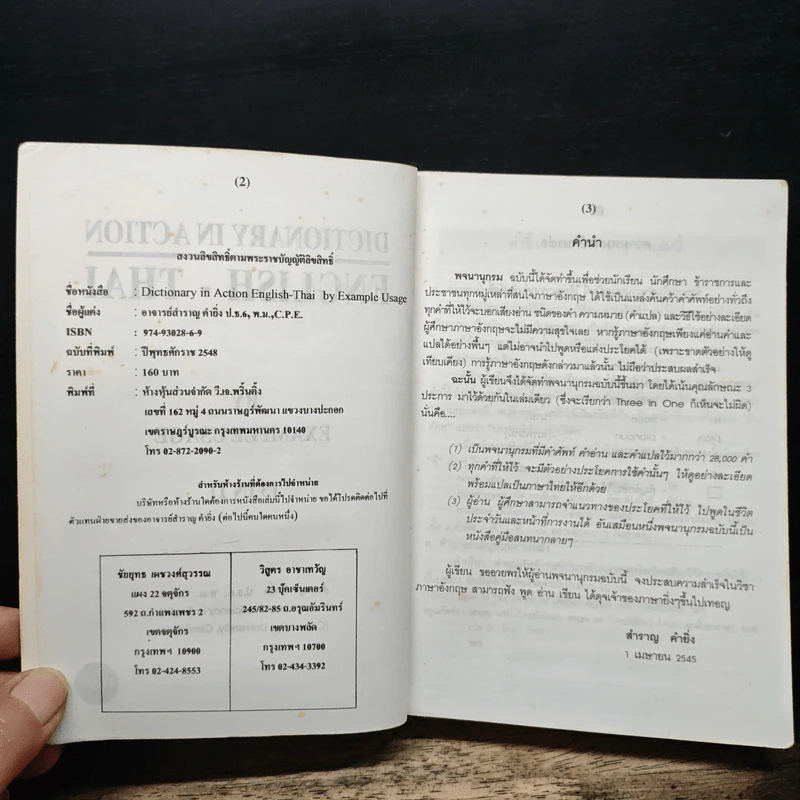 (2)
สงวนลิขสิทธิ์ตามพระราชบัญญัติลิขสิทธิ์
ชื่อหนังสือ : Dictionary in Action English-Thai by Example Usage
ชื่อผู้แต่ง : อาจารย์สำราญ คำยิ่ง ป.ธ.6, พ.ม.,C.P.E.
ISBN : 974-93028-6-9
ฉบับที่พิมพ์ : ปีพุทธศักราช 2548
ราคา : 160 บาท
พิมพ์ที่ : ห้างหุ้นส่วนจำกัด วี.เจ.พริ้นติ้ง
เลขที่ 162 หมู่ 4 ถนนราษฎร์พัฒนา แขวงบางปะกอก
เขตราษฎร์บูรณะ กรุงเทพมหานคร 10140
โทร 02-872-2090-2
สำหรับห้างร้านที่ต้องการไปจำหน่าย
บริษัทหรือห้างร้านใดต้องการหนังสือเล่มนี้ไปจำหน่าย ขอได้โปรดติดต่อไปที่
ตัวแทนฝ่ายขายส่งของอาจารย์สำราญ คำยิ่ง (ต่อไปนี้คนใดคนหนึ่ง)
ชัยยุทธ เผชวงศ์สุวรรณ
แผง 22 จตุจักร
592 ถ.กำแพงเพชร 2
เขตจตุจักร
กรุงเทพฯ 10900
โทร 02-424-8553
วิสูตร อาชาเทวัญ
23 บุ๊คเซ็นเตอร์
245/82-85 ถ.อรุณอัมรินทร์
เขตบางพลัด
กรุงเทพฯ 10700
โทร 02-434-3392
(3)
คำนำ
พจนานุกรม ฉบับนี้ได้จัดทำขึ้นเพื่อช่วยนักเรียน นักศึกษา ข้าราชการและ
ประชาชนทุกหมู่เหล่าที่สนใจภาษาอังกฤษ ได้ใช้เป็นแหล่งค้นคว้าคำศัพท์อย่างทั่วถึง
ทุกคำที่ให้ไว้จะบอกเสียงอ่าน ชนิดของคำ ความหมาย (คำแปล) และวิธีใช้อย่างละเอียด
ผู้ศึกษาภาษาอังกฤษจะไม่มีความสุขใจเลย หากรู้ภาษาอังกฤษเพียงแค่อ่านคำและ
แปลได้อย่างพื้นๆ แต่ไม่อาจนำไปพูดหรือแต่งประโยคได้ (เพราะขาดตัวอย่างให้ดู
เทียบเคียง) การรู้ภาษาอังกฤษดังกล่าวมาแล้วนั้น ไม่ถือว่าประสบผลสำเร็จ
ฉะนั้น ผู้เขียนจึงได้จัดทำพจนานุกรมฉบับนี้ขึ้นมา โดยได้เน้นคุณลักษณะ 3
ประการ มาไว้ด้วยกันในเล่มเดียว (ซึ่งจะเรียกว่า Three in One ก็เห็นจะไม่ผิด)
นั่นคือ....
(1) เป็นพจนานุกรมที่มีคำศัพท์ คำอ่าน และคำแปลไว้มากกว่า 28,000 คำ
(2) ทุกคำที่ให้ไว้ จะมีตัวอย่างประโยคการใช้คำนั้นๆ ให้ดูอย่างละเอียด
พร้อมแปลเป็นภาษาไทยให้อีกด้วย
(3) ผู้อ่าน ผู้ศึกษาสามารถจำแนวทางของประโยคที่ให้ไว้ ไปพูดในชีวิต
ประจำวันและหน้าที่การงานได้ อันเสมือนหนึ่งพจนานุกรมฉบับนี้เป็น
หนังสือคู่มือสนทนากลายๆ
ผู้เขียน ขออวยพรให้ผู้อ่านพจนานุกรมฉบับนี้ จงประสบความสำเร็จในวิชา
ภาษาอังกฤษ สามารถฟัง พูด อ่าน เขียน ได้ดุจเจ้าของภาษายิ่งๆขึ้นไปเทอญ
สำราญ คำยิ่ง
1 เมษายน 2545